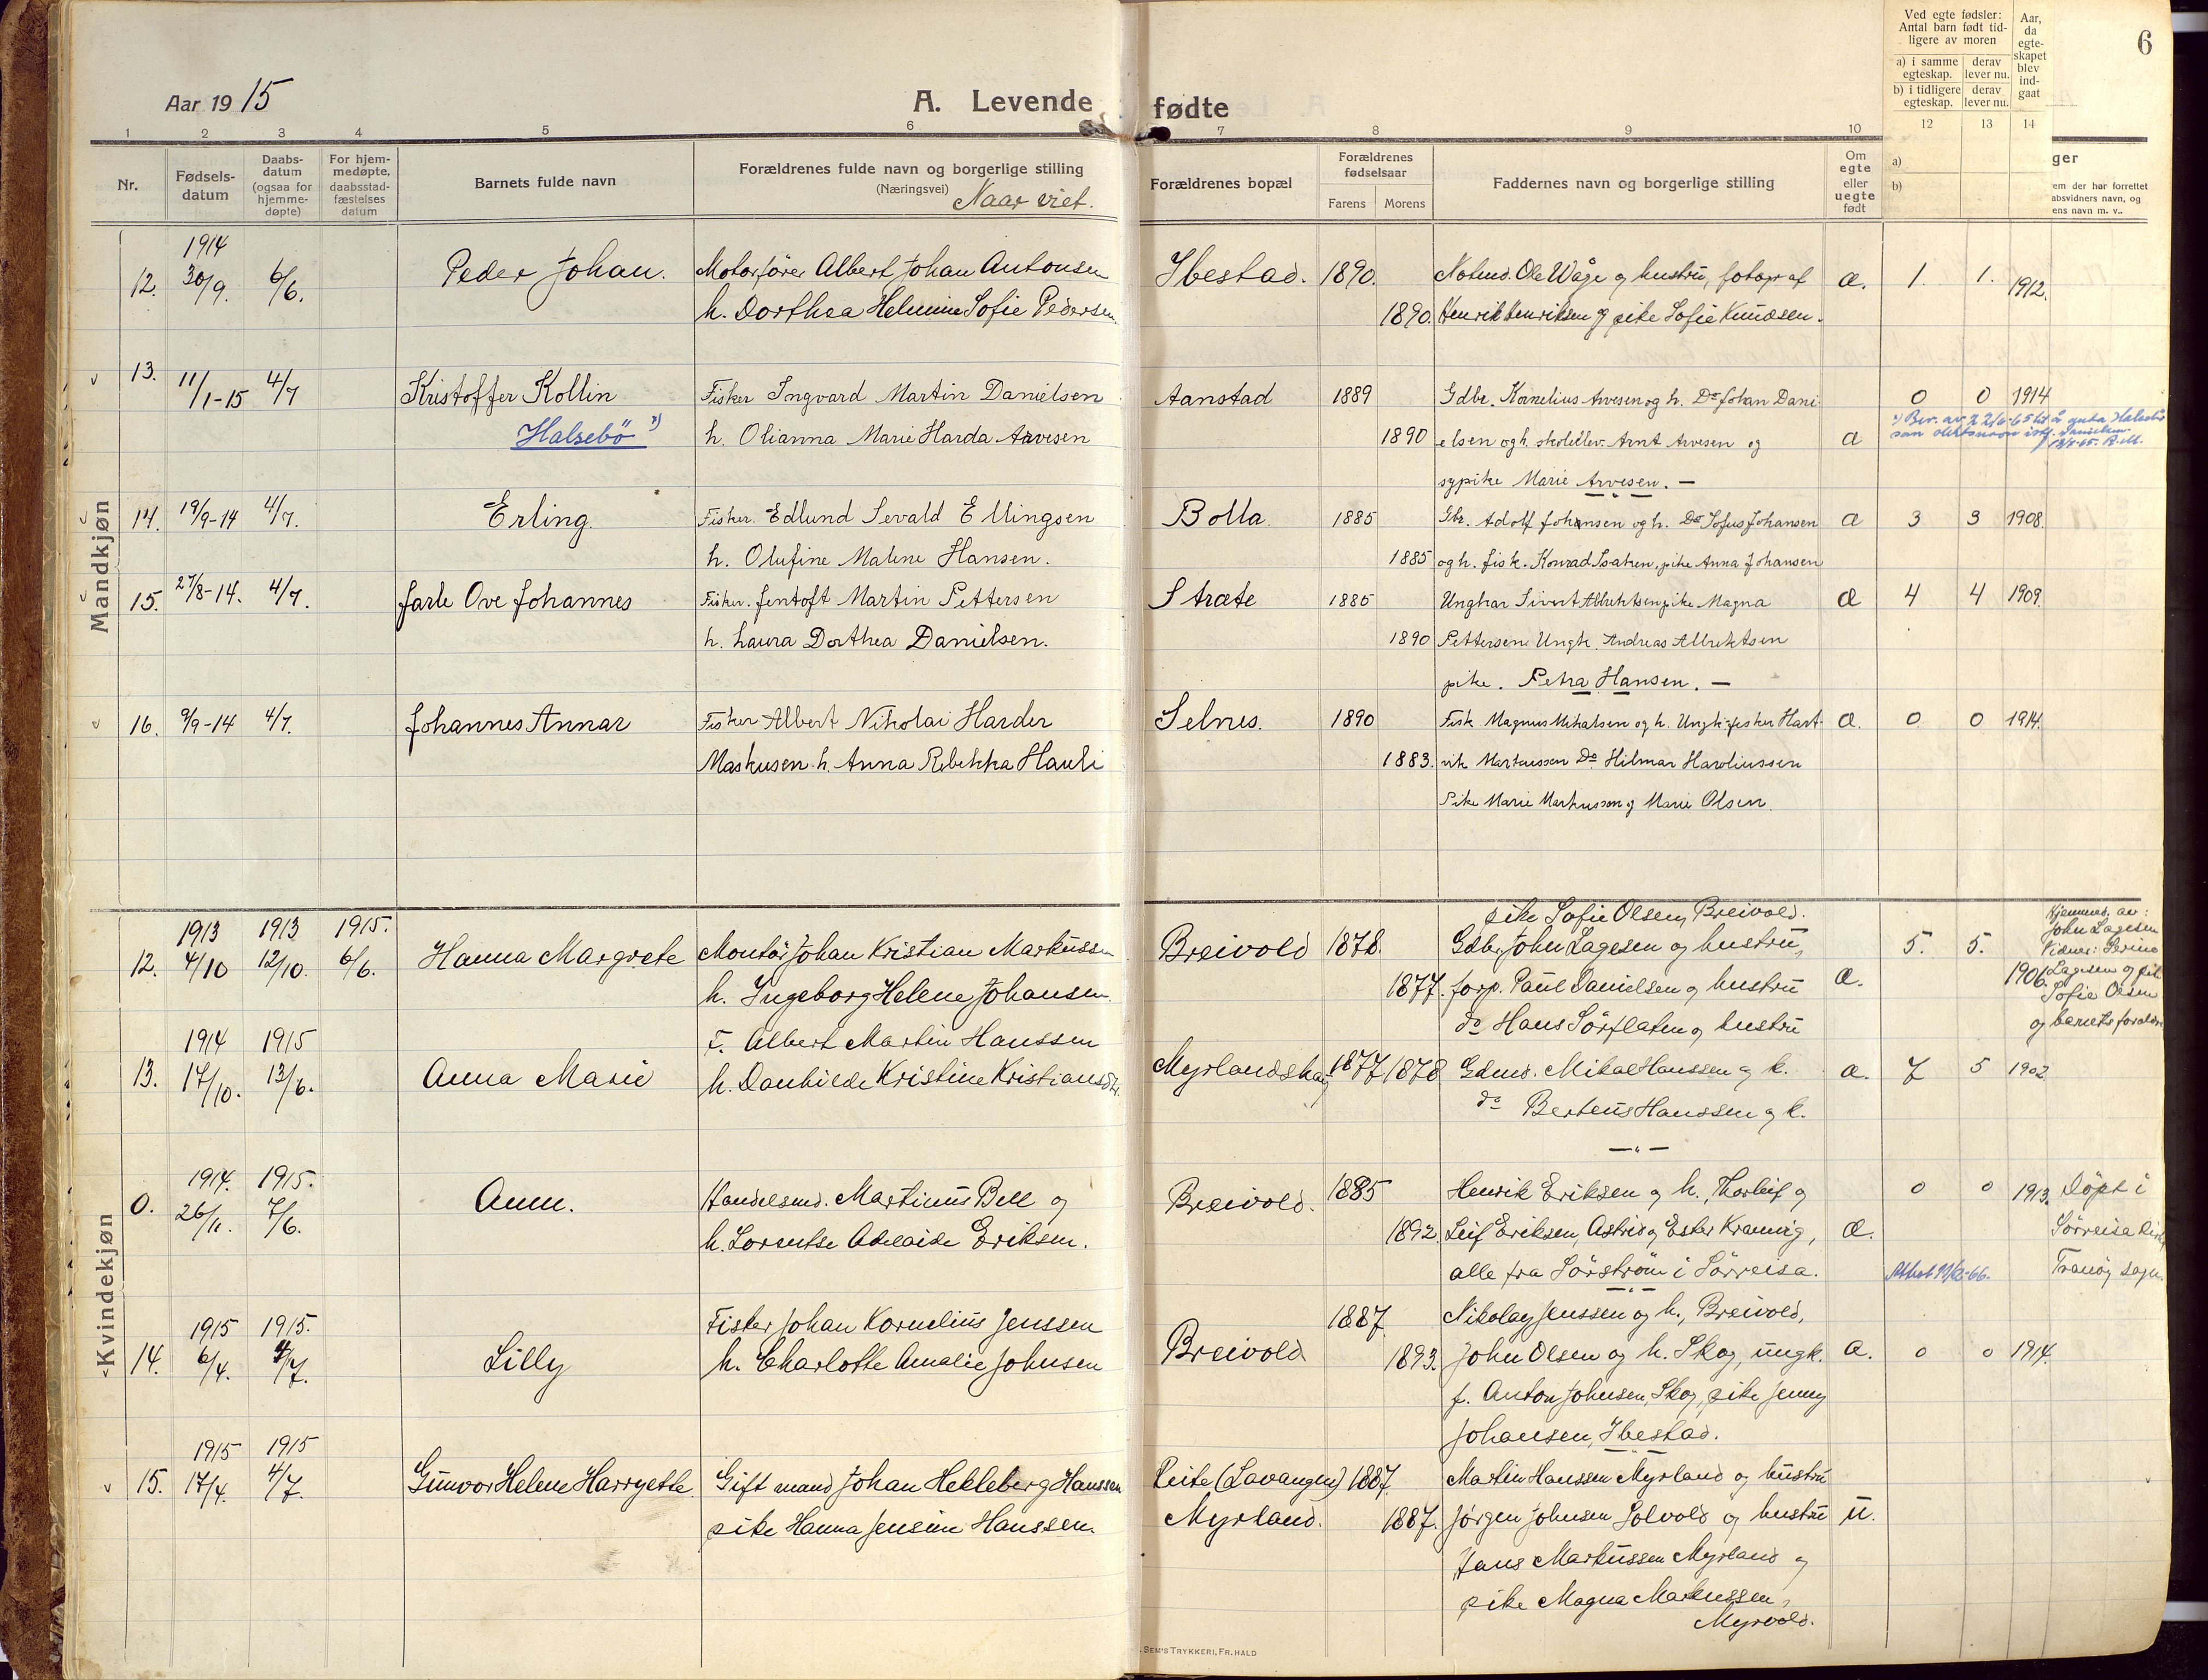 Aar 1915
A. Levende fødte
6
1 2 3 4 5 6 7 8 9 10 12 13 14
Nr.
Fødsels-
datum
Daabs-
datum
(ogsaa for
hjemme-
døpte)
For hjem-
medøpte,
daabsstad-
fæstelses
datum
Barnets fulde navn
Forældrenes fulde navn og borgerlige stilling
(Næringsvei) Naar viet.
Forældrenes bopæl
Forældrenes
fødselsaar
Farens Morens
Faddernes navn og borgerlige stilling
Om
egte
eller
uegte
født
Ved egte fødsler:
Antal barn født tid-
ligere av moren
a) i samme
egteskap.
derav
lever nu.
b) i tidligere
egteskap.
derav
lever nu.
Aar,
da
egte-
skapet
blev
ind-
gaat
a)
b)
ger
em der har forrettet
absvidners navn, og
ens navn m. v..
Mandkjøn
1914
12. 30/9. 6/6. Peder Johan. Motorfører Albert Johan Antonsen Ibestad. 1890. Notmd. Ole Wåge og hustru, fotograf æ. 1. 1. 1912.
h. Dorthea Helmine Sofie Pedersen 1890. Henrik Henriksen og pike Sofie Knudsen.
13. 11/1-15 4/7 Kristoffer Kollin Fisker Ingvard Martin Danielsen Aanstad 1889 Gdbr. Kornelius Arvesen og h. Do Johan Dani 0 0 1914
Halsebö h. Olianna Marie Harda Arvesen 1890 elsen og h. skoleelev. Arnt Arvesen og æ
sypike Marie Arvesen. —
14. 19/9-14 4/7. Erling. Fisker. Edlund Sevald Ellingsen Bolla. 1885 Gbr. Adolf Johansen og h. Do Sofus Johansen æ 3 3 1908.
h. Olufine Malene Hansen. 1885 og h. fisk. Konrad Isaksen, pike Anna Johansen
15. 27/8-14. 4/7. Jarle Ove Johannes Fisker. Jentoft Martin Pettersen Stræte 1885 Ungkar Sivert Albriktsen pike Magna æ 4 4 1909.
h. Laura Dorthea Danielsen. 1890 Pettersen Ungk. Andreas Albriktsen
pike. Petra Hansen. —
16. 9/9-14 4/7. Johannes Annar Fisker Albert Nikolai Harder Selnes. 1890 Fisk. Magnus Mikalsen og h. Ungk. fisker Hart- æ. 0 0 1914.
Markusen h. Anna Rebekka Hauli 1883. vik Markussen Do Hilmar Haroliussen
Pike Marie Markusson og Marie Olsen.
Kvindekjøn
pike Sofie Olsen, Breivold.
1913 1913 1915.
12. 4/10 12/10. 6/6. Hanna Margrete Montør Johan Kristian Markussen Breivold 1878. Gdbr John Lagesen og hustru, 5. 5.
h. Ingeborg Helene Johansen 1877. forp. Paul Danielsen og hustru æ. 1906.
do Hans Sörflaten og hustru
Hjemmed. av:
John Lagesen
Vidner:
Lagesen og
Sofie Olsen
og barnets
1914 1915 F. Albert Martin Hanssen
13. 17/10. 13/6. Anna Marie h. Danhilde Kristine Kristiansdtr. Myrlandshaug 1877 1878 Gdmd. Mikal Hanssen og k. æ. 7 5 1902
do Berteus Hanssen og k.
— " —
1914. 1915.
0. 26/11. 7/6. Aunn. Handelsmd. Martinus Bell og Breivold. 1885 Henrik Eriksen og h., Thorleif og 0 0 1913.
h. Lorentse Adelaide Eriksen. 1892. Leif Eriksen, Astrid og Ester Kramvig, æ.
alle fra Sörstrøm i Sörreisa.
Döpt i
Sörreisa kirke
Tranöy sogn.
Attest -66.
1915 1915. Fisker Johan Kornelius Jenssen 1887. Nikolay Jenssen og h., Breivold,
14. 6/4. 4/7. Lilly h. Charlotte Amalie Johnsen Breivold 1893. John Olsen og h. Skog, ungk. æ. 0 0 1914.
f. Anton Johnsen, Skog, pike Jenny
Johansen, Ibestad.
1915 1915
15. 17/4. 4/7. Gunvor Helene Harryette Gift mand Johan Hekleberg Hanssen (Lavangen) 1887. Martin Hanssen Myrland og hustru
pike Hanna Jensine Hanssen. Myrland. 1887. Jørgen Johnsen Solvold og hustru u.
Hans Markussen Myrland og
pike Magna Markussen,
Myrvold.
SEM'S TRYKKERI, FR.HALD